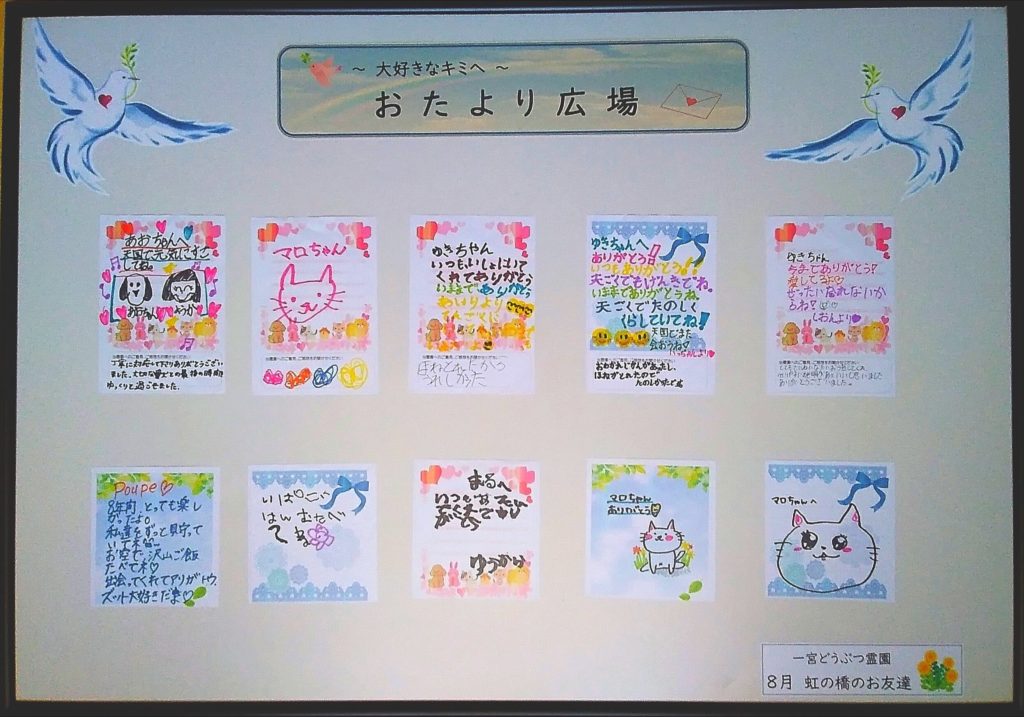 ～ 大好きなキミへ ～
おたより広場
あおちゃんへ
天国で元気にすごしてね。
あおちゃん
丁寧に対応して下さりありがとうございました。大切な愛犬との最後の時間ゆっくりと過ごせました。
マロちゃん
ゆきちゃん
いつもいっしょにいて
くれてありがとう
いままでありがとう
ゆきちゃんへ
ありがとう!
いつもありがとう!
天ごくでもげんきでね。
いままでありがとうね。
天ごくでたのしく
くらしていてね!
天国でまた
会おうね
おわかれじかんがあったし、
ほねがとれたので
たのしかったです
ゆきちゃん
今までありがとう!
愛してる
ぜったい忘れないか
らね?
しおんより
Poupe
8年間 とっても楽し
かったよ。
私達をずっと見守って
いてネ
お空で沢山ご飯
たべてネ♡
出会ってくれてアリガトウ
ズット大好きだよ♡
いぱい
はん たべ
てね
まるへ
マロちゃん
ありがとう
マロちゃんへ
一宮どうぶつ霊園
8月 虹の橋のお友達